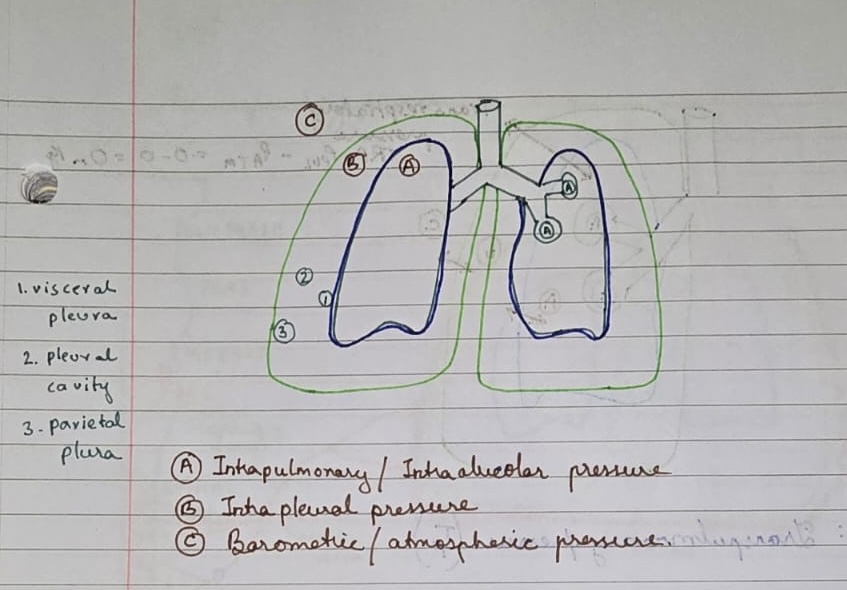 C
B A A
A
2
1
3
1. visceral
pleura
2. pleural
cavity
3. parietal
plura
A Intrapulmonary / Intraalveolar pressure
B Intrapleural pressure
C Barometric / atmospheric pressure.